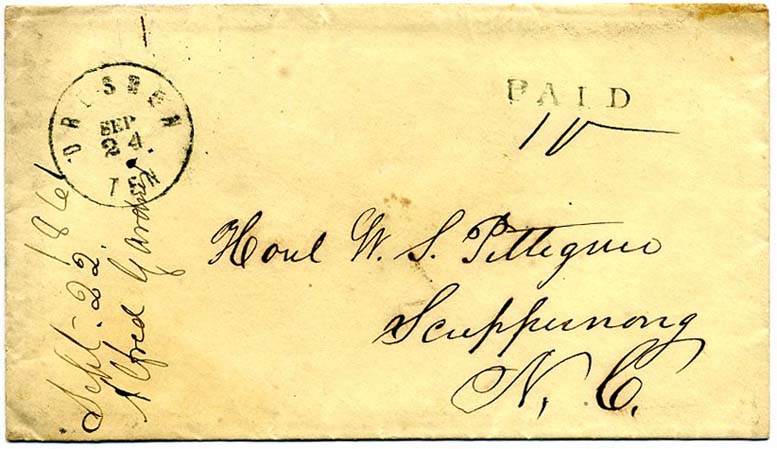 DRESDEN
SEP
24
TEN
PAID
10
Honl W. S. Pettigrew
Scuppernong
N. C.
Sept. 22. 1861
Alfred Gardner